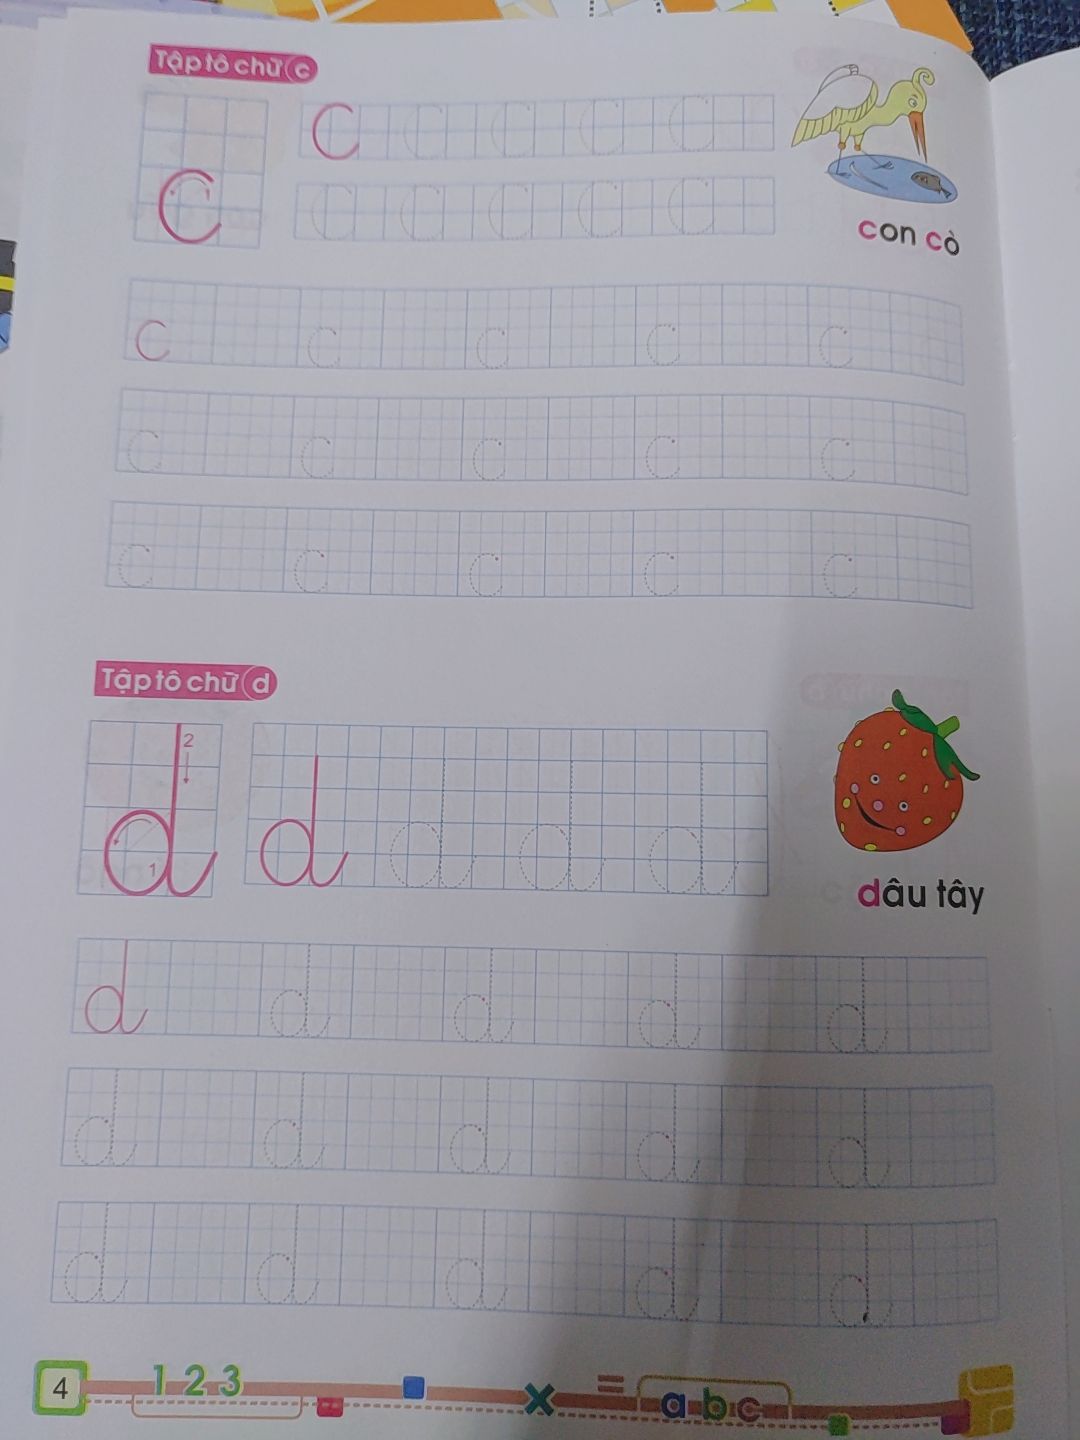 Tập tô chữ c
c
c c c c c
c c c c c
con cò
c c c c c
c c c c c
c c c c c
Tập tô chữ d
d 2 1
d d d d
dâu tây
d d d d d
d d d d d
d d d d d
4 1 2 3 x = a b c